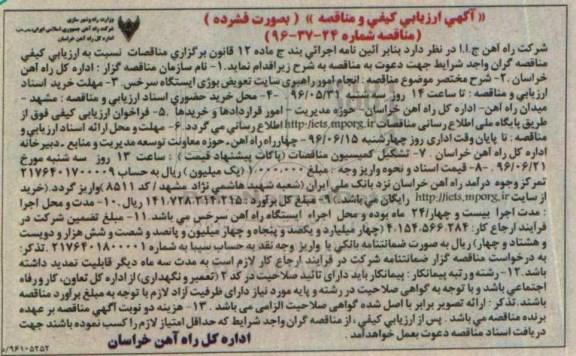 وزارت راه و شهر سازی
شرکت راه آهن جمهوری اسلامی ایران
اداره کل راه آهن خراسان
« آگهي ارزيابي كيفي و مناقصه » ( بصورت فشرده )
( مناقصه شماره ۲۴-۳۷-۹۶ )
شرکت راه آهن ج.ا.ا در نظر دارد بنابر آئین نامه اجرائی بند ج ماده ۱۲ قانون برگزاری مناقصات نسبت به ارزیابی کیفی
مناقصه گران واجد شرایط جهت دعوت به مناقصه به شرح زیر اقدام نماید. ۱- نام سازمان مناقصه گزار : اداره کل راه آهن
خراسان ۲- شرح مختصر موضوع مناقصه : انجام امور راهبری سایت تعویض بوژی ایستگاه سرخس. ۳- مهلت خرید اسناد
ارزیابی و مناقصه : تا ساعت ۱۴ روز سه شنبه ۹۶/۰۵/۳۱ ۴- محل خرید حضوری اسناد ارزیابی و مناقصه : مشهد -
میدان راه آهن- اداره کل راه آهن خراسان- حوزه مدیریت - امور قراردادها و خریدها ۵- فراخوان ارزیابی کیفی فوق از
طریق پایگاه ملی اطلاع رسانی مناقصات http://iets.mporg.ir اطلاع رسانی می گردد. ۶- مهلت و محل ارائه اسناد ارزیابی و
مناقصه : تا پایان وقت اداری روز چهارشنبه ۹۶/۰۶/۱۵ - چهارراه راه آهن - حوزه معاونت توسعه مدیریت و منابع - دبیرخانه
اداره کل راه آهن خراسان . ۷- تشکیل کمیسیون مناقصات (پاکات پیشنهاد قیمت) : ساعت ۱۳ روز سه شنبه مورخ
۹۶/۰۶/۲۱ ۸- قیمت اسناد و نحوه واریز وجه : مبلغ ۱،۰۰۰،۰۰۰ (یک میلیون) ریال به حساب ۲۱۷۶۴۰۱۷۰۰۰۰۹
تمرکز وجوه درآمد راه آهن خراسان نزد بانک ملی ایران (شعبه شهید هاشمی نژاد مشهد / کد ۸۵۱۱) واریز گردد.(خرید
از سایت http://iets.mporg.ir رایگان می باشد). ۹- مبلغ کل برآورد : ۱۴۱.۷۲۸.۲۱۴.۲۱۵ ریال. ۱۰- مدت و محل اجرا
: مدت اجرا بیست و چهار/۲۴ ماه بوده و محل اجراء ایستگاه راه آهن سرخس می باشد. ۱۱- مبلغ تضمین شرکت در
فرآیند ارجاع کار: ۴.۱۵۴.۵۶۶.۲۸۴ (چهار میلیارد و یکصد و پنجاه و چهار میلیون و پانصد و شصت و شش هزار و دویست
و هشتاد و چهار) ریال به صورت ضمانتنامه بانکی یا واریز وجه نقد به حساب سیبا به شماره ۲۱۷۶۴۰۱۸۰۰۰۰۱ .تذکر:
به درخواست مناقصه گزار ضمانتنامه شرکت در فرآیند ارجاع کار لازم است به مدت سه ماه دیگر قابلیت تمدید داشته
باشد. ۱۲- رشته و رتبه پیمانکار : پیمانکار باید دارای تائید صلاحیت در کد ۲ (تعمیر و نگهداری) از اداره کل تعاون، کار و رفاه
اجتماعی باشد و با توجه به گواهی صلاحیت در رشته و پایه مورد نیاز دارای ظرفیت آزاد لازم با توجه به مبلغ برآورد مناقصه
باشند. تذکر : ارائه تصویر برابر با اصل شده گواهی صلاحیت الزامی می باشد. ۱۳- هزینه دو نوبت آگهی مناقصه بر عهده
برنده مناقصه می باشد . پس از ارزیابی کیفی ، از مناقصه گران واجد شرایط که حداقل امتیاز لازم را کسب نموده باشند جهت
دریافت اسناد مناقصه دعوت بعمل خواهد آمد .
اداره کل راه آهن خراسان
۹۶۱۰۵۲۵۲/م